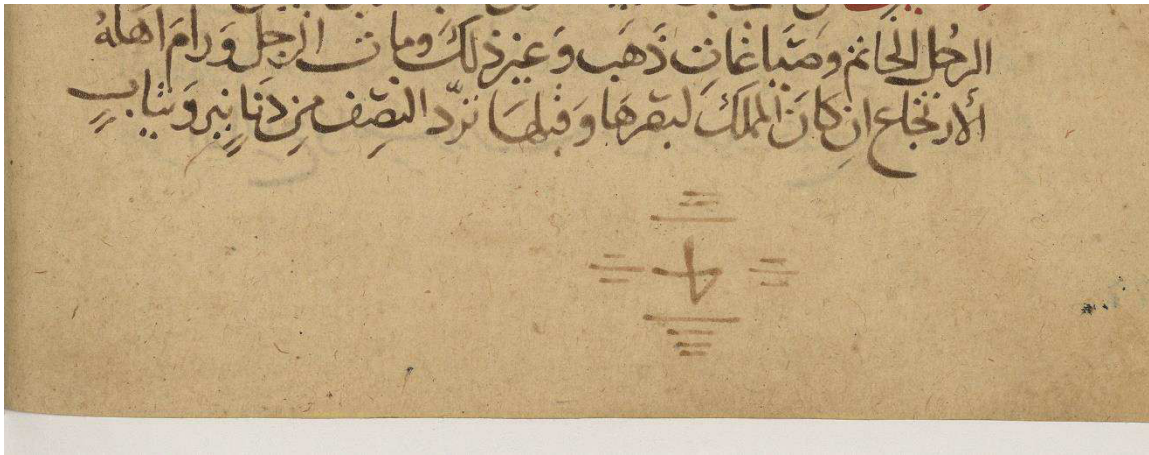 الرجل الخاتم وصياغات ذهب وغير ذلك ومات الرجل ورام اهله
الارتجاع ان كان المملك لبقرها وقبلها نرد النصف من دنانير وثياب